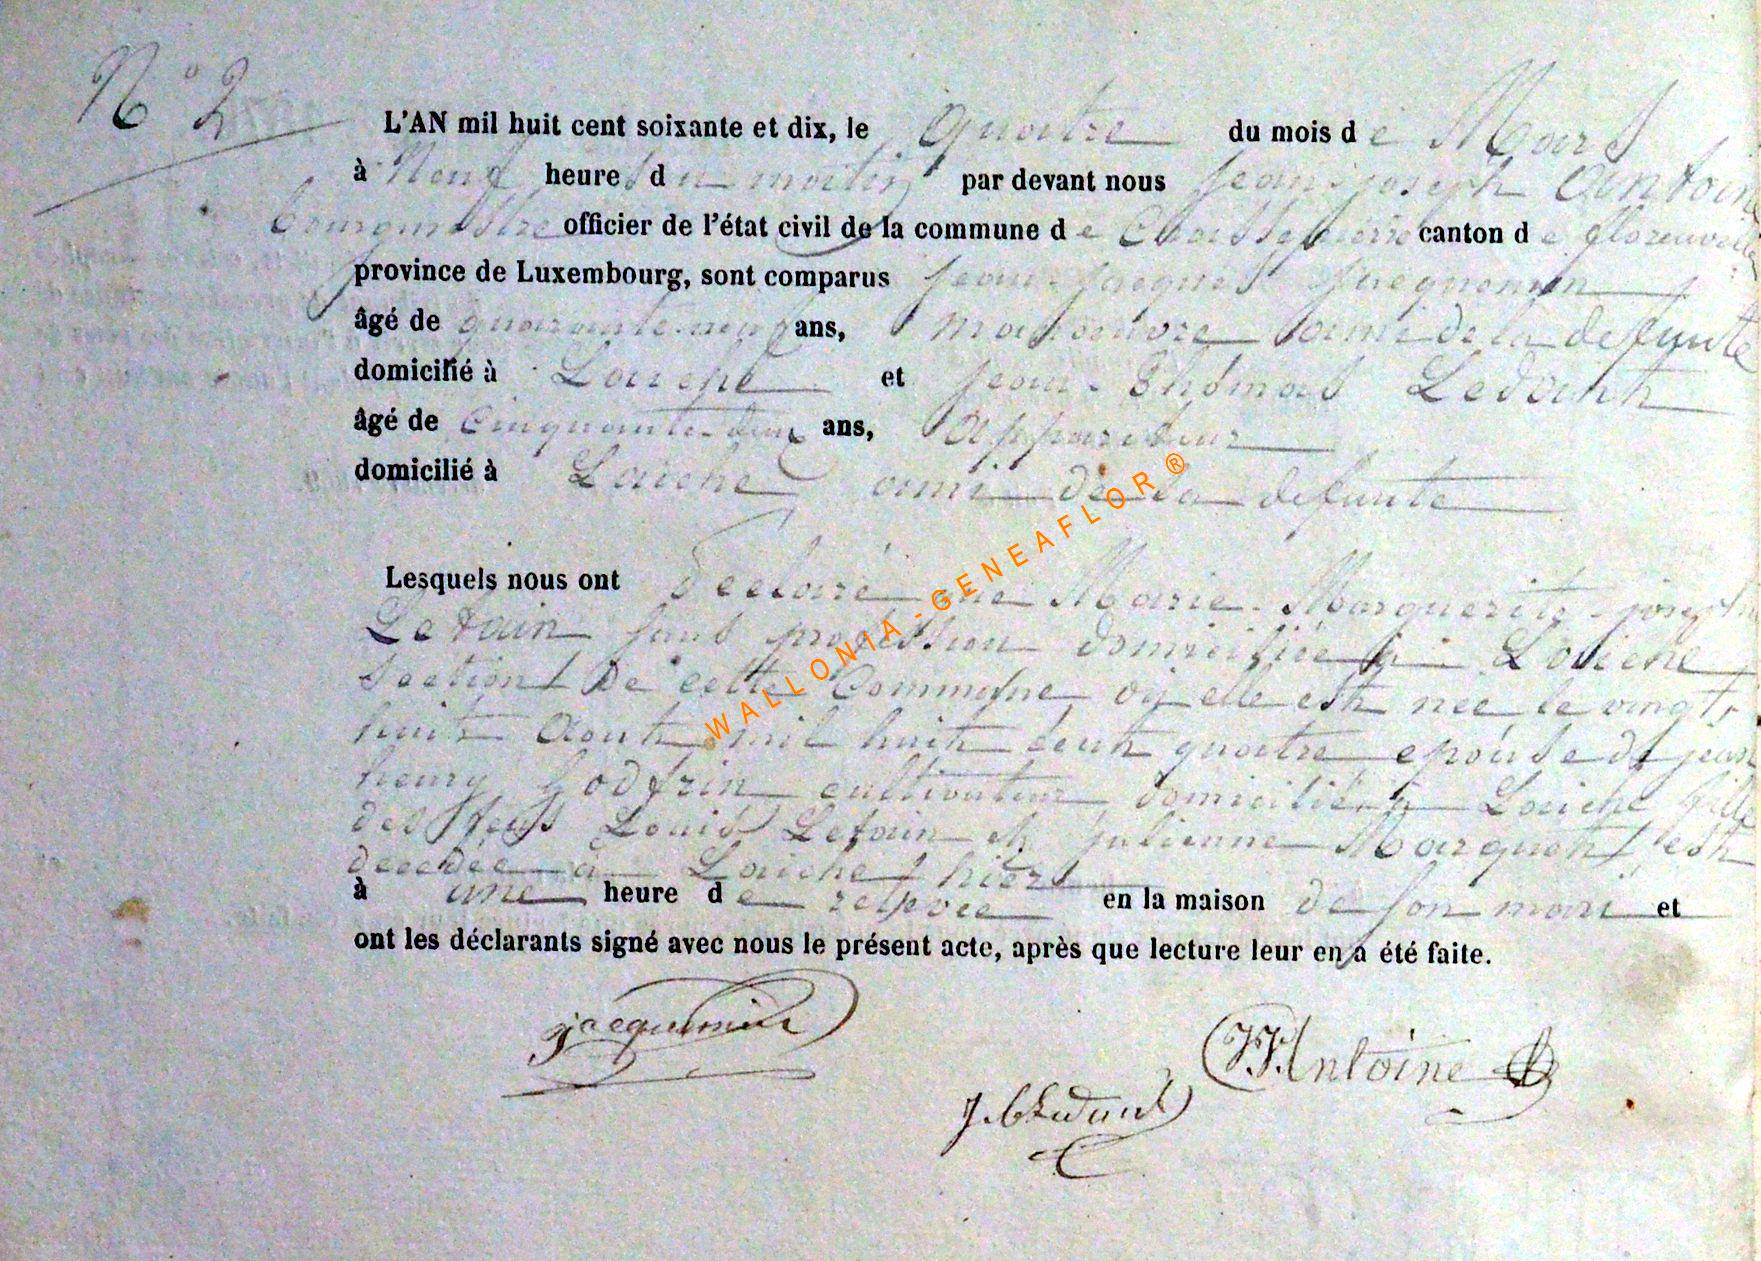 N° 2
L'AN mil huit cent soixante et dix, le quatre du mois de Mars
à Neuf heures du matin par devant nous Jean-joseph Antoine
bourgmestre officier de l'état civil de la commune de Chassepierre canton de florenville
province de Luxembourg, sont comparus Jean-Jacques Jacquemin
âgé de quarante-neuf ans, manoeuvre ami de la defunte
domicilié à Laiche et Jean-Thomas Ledant
âgé de Cinquante-deux ans, Appariteur
domicilié à Laiche ami de la defunte
Lesquels nous ont declaré que Marie-Marguerite-josephe
Lefain sans profession domiciliée à Laiche
section de cette Commune où elle est née le vingt
huit Aout mil huit cent quatre epouse de jean
henry Godfrin cultivateur domicilié à Laiche fille
des feus Louis Lefain et julienne Marquet est
decedée à Laiche hiers
à une heure de relevée en la maison de son mari et
ont les déclarants signé avec nous le présent acte, après que lecture leur en a été faite.
jacquemin
JJ Antoine
J. th Ledant
WALLONIA-GENEAFLOR ®